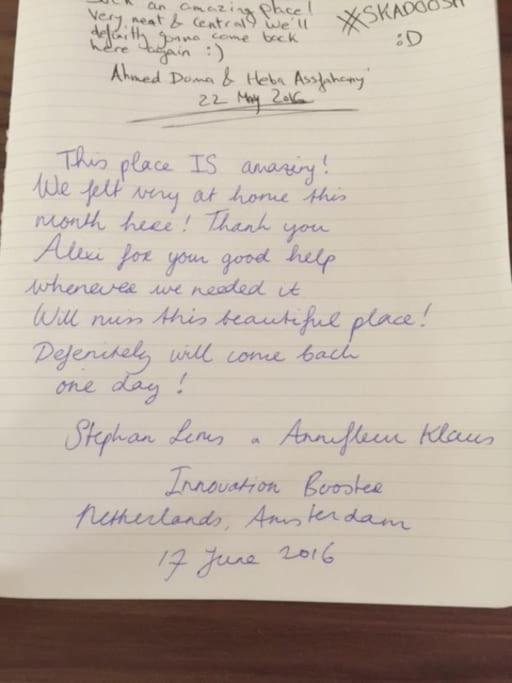 an amazing place!
Very neat & central, We'll
definitly gonna come back
here again :)
#SKADOOSH
:D
Ahmed Doma & Heba
22 May 2016
This place IS amazing!
We felt very at home this
month here! Thank you
Alexi for your good help
whenever we needed it
Will miss this beautiful place!
Defenitely will come back
one day!
Stephan & Annefleur Klaus
Innovation Booster
Netherlands, Amsterdam
17 June 2016